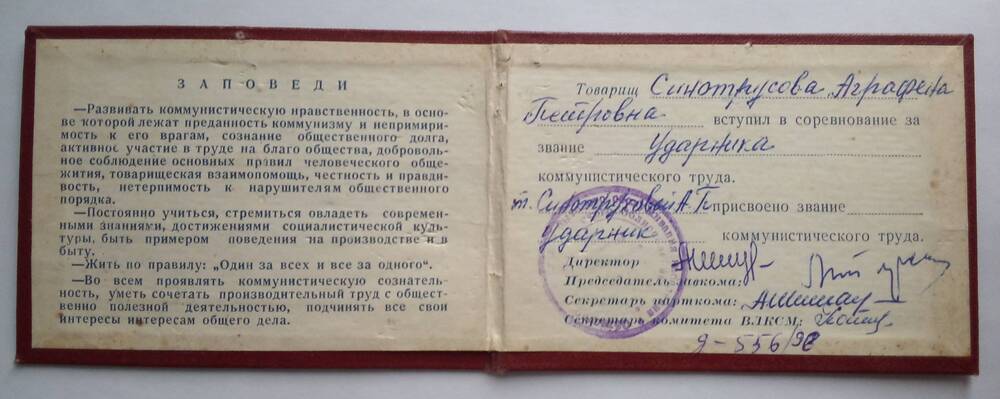 ЗАПОВЕДИ
—Развивать коммунистическую нравственность, в осно
ве которой лежат преданность коммунизму и непримири-
мость к его врагам, сознание общественного долга,
активное участие в труде на благо общества, доброволь-
ное соблюдение основных правил человеческого обще-
жития, товарищеская взаимопомощь, честность и правди-
вость, нетерпимость к нарушителям общественного
порядка.
—Постоянно учиться, стремиться овладеть современ-
ными знаниями, достижениями социалистической куль-
туры, быть примером поведения на производстве и в
быту.
—Жить по правилу: „Один за всех и все за одного“.
—Во всем проявлять коммунистическую сознатель-
ность, уметь сочетать производительный труд с общест-
венно полезной деятельностью, подчинять все свои
интересы интересам общего дела.
Товарищ Синотрусова Аграфена
Петровна вступил в соревнование за
звание Ударника
коммунистического труда.
т. Синотрусовой А.П присвоено звание
Ударник коммунистического труда.
Директор
Председатель завкома:
Секретарь парткома:
Секретарь комитета ВЛКСМ:
д-556/98